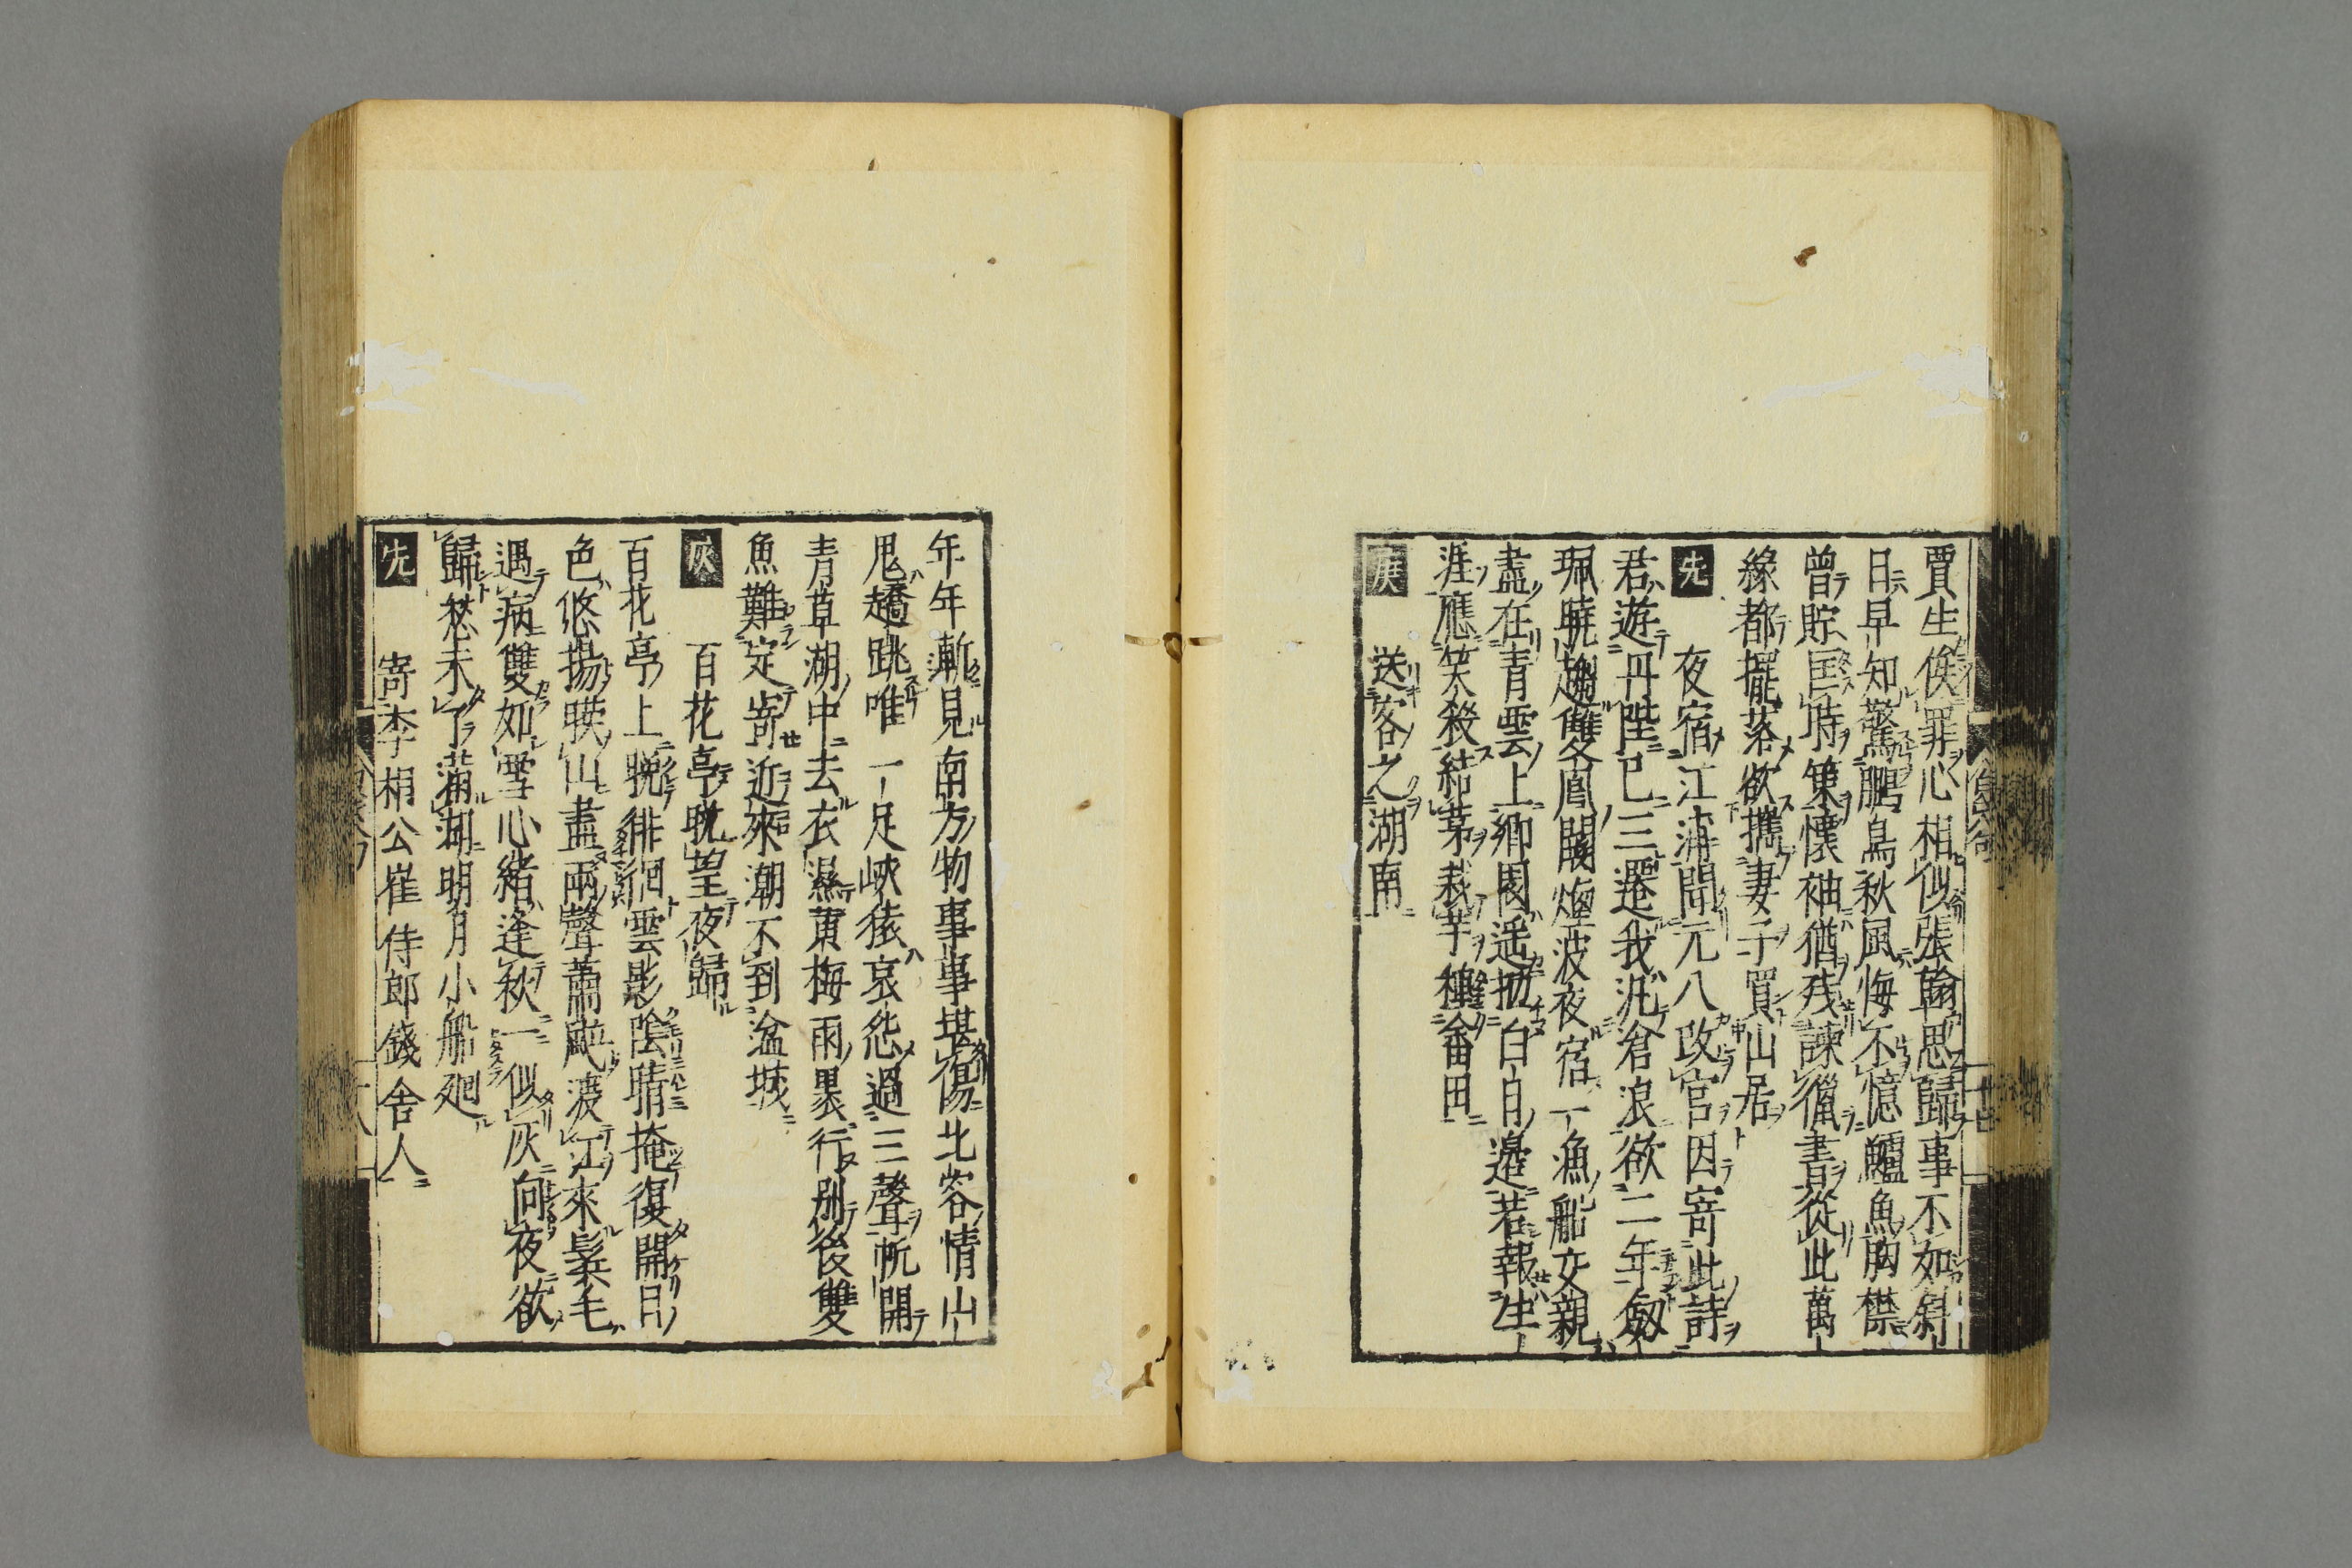 賈生俟罪心相似張翰思歸事不如斜
日早知驚鵩鳥秋風悔不憶鱸魚胸襟
曾貯匡時策懷袖猶残諫獵書從此萬
緣都擺落欲攜妻子買山居
先 夜宿江浦聞元八改官因寄此詩
君遊丹陛已三遷我汎倉浪欲二年劔
珮曉趨雙鳳闕煙波夜宿一漁船交親
盡在青雲上鄉國遥抛白日邉若報生
涯應笑殺結茅栽芋種畲田
庚 送客之湖南
年年漸見南方物事事堪傷北客情山
鬼趫跳唯一足峽猿哀怨過三聲帆開
青草湖中去衣濕黄梅雨裏行別後雙
魚難定寄近來潮不到湓城
灰 百花亭晩望夜歸
百花亭上晩徘徊雲影陰晴掩復開日
色悠揚暎山盡雨聲蕭颯渡江來鬓毛
遇病雙如雪心緒逢秋一似灰向夜欲
歸愁未了滿湖明月小船廻
先 寄李相公崔侍郎錢舎人